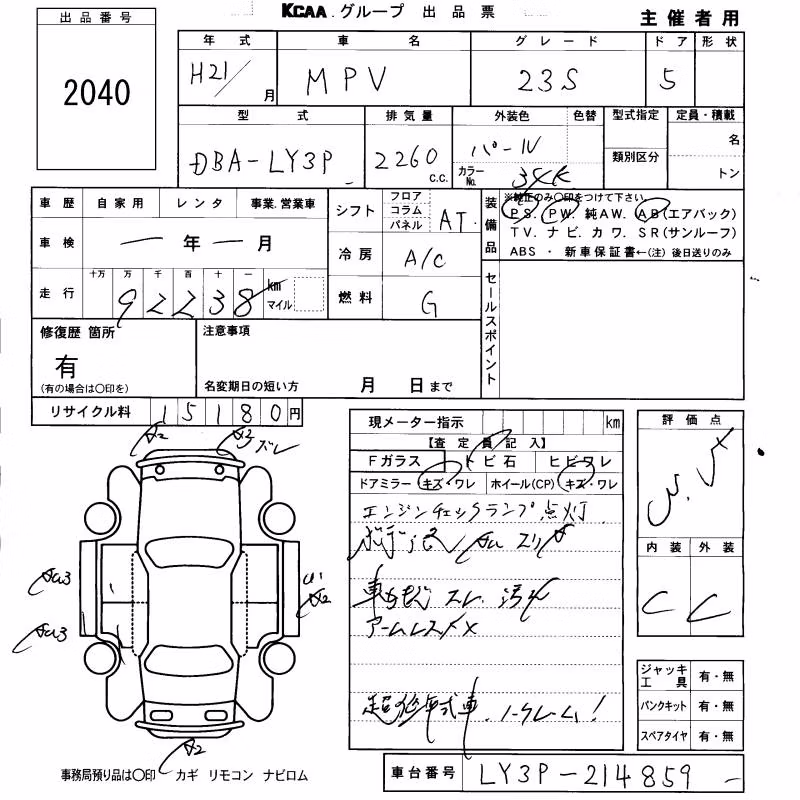 KCAA グループ 出品票
主催者用
出品番号
2040
年式 車名 グレード ドア 形状
H21/ 月 MPV 23S 5
型式 排気量 外装色 色替 型式指定 定員・積載
DBA-LY3P 2260 c.c. パール カラーNo. 34K 類別区分 名 トン
車歴 自家用 レンタ 事業.営業車
車検 ー年ー月
走行 十万 万 千 百 十 一
92238 km マイル
シフト フロア コラム パネル AT
冷房 A/C
燃料 G
装備品 ※純正のみ〇印をつけて下さい
PS. PW. 純AW. AB(エアバック)
TV. ナビ. カワ. SR(サンルーフ)
ABS ・ 新車保証書←(注) 後日送りのみ
セールスポイント
修復歴 箇所
有
(有の場合は〇印を)
注意事項
名変期日の短い方 月 日まで
リサイクル料 15180円
現メーター指示 km
【査定員記入】
Fガラス トビ石 ヒビワレ
ドアミラー キズ・ワレ ホイール(CP) キズ・ワレ
エンジンチェックランプ点灯
スリ
スレ. 汚れ
アームレスト×
超低年式車. ノークレーム!
評価点
内装 外装
C C
A2 A3 ズレ
A2
A2
ジャッキ工具 有・無
パンクキット 有・無
スペアタイヤ 有・無
事務局預り品は〇印 カギ リモコン ナビロム
車台番号 LY3P-214859